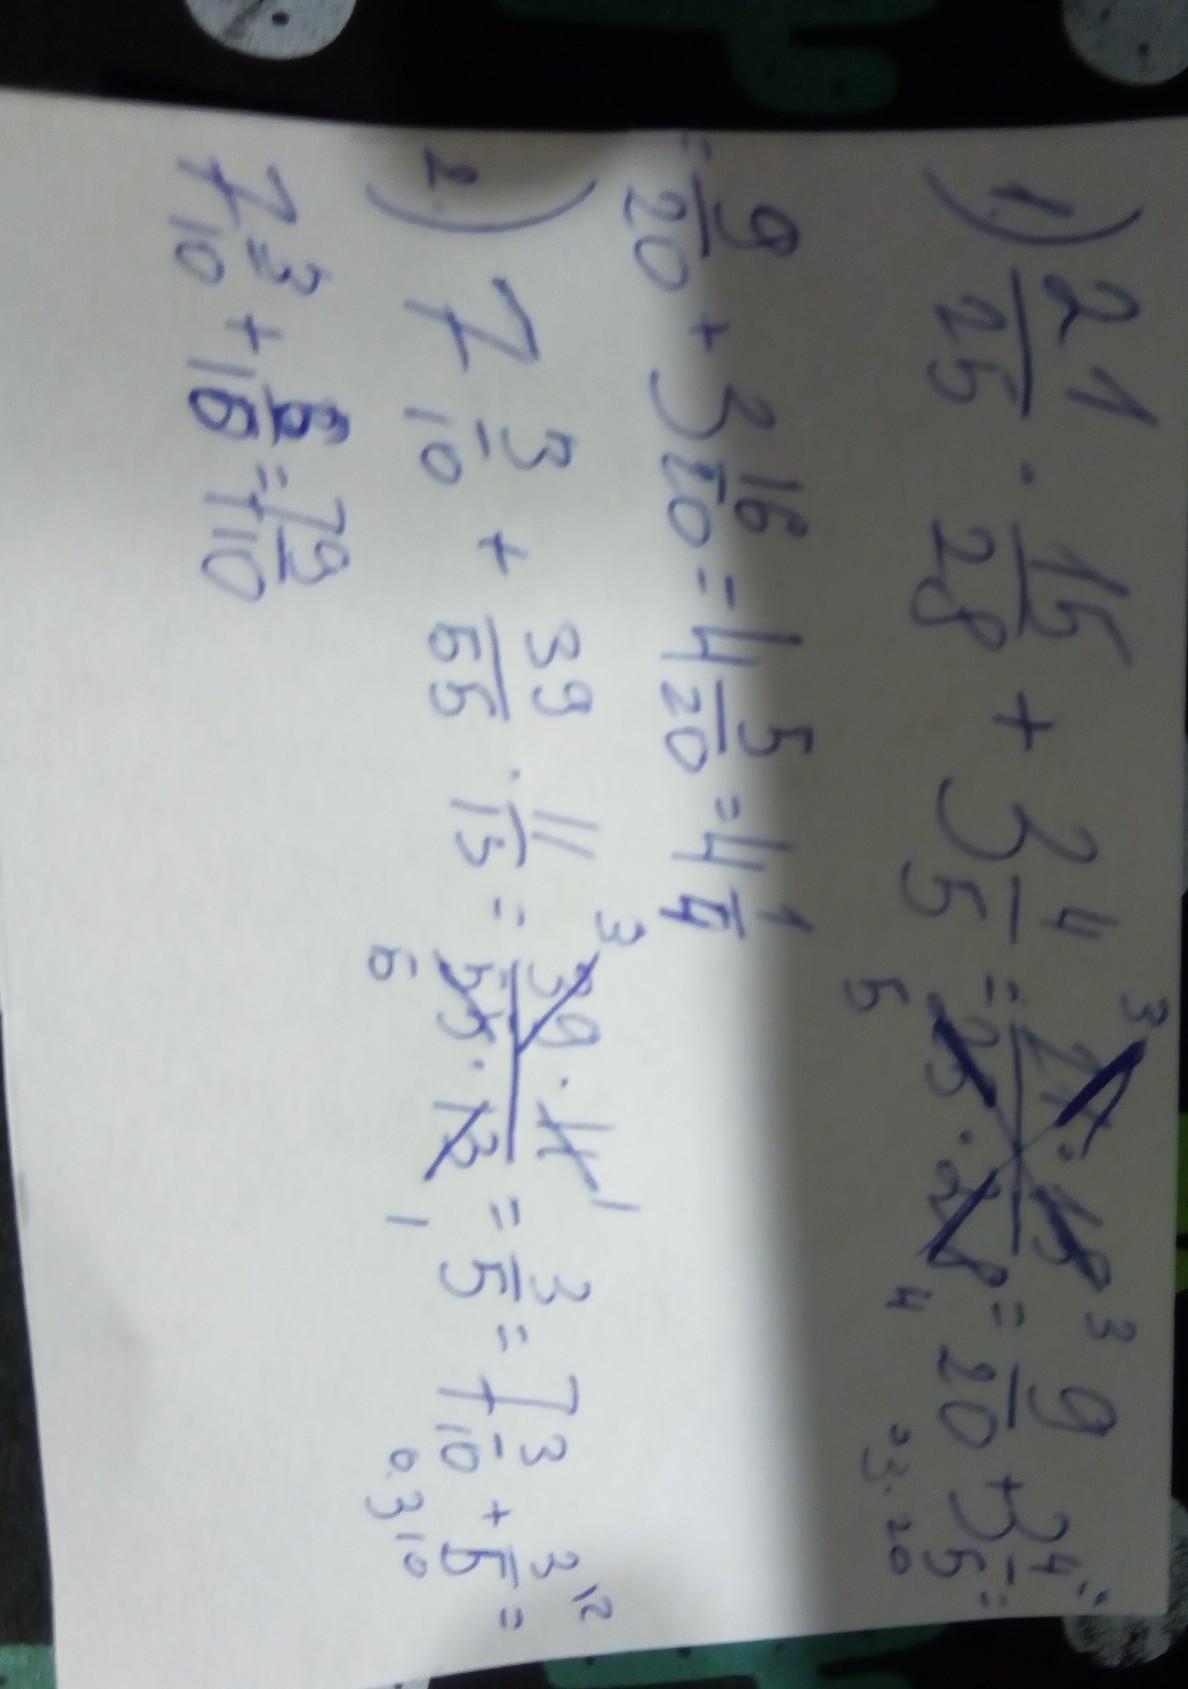 1.) 21/25 · 15/28 + 3 4/5 = 21 · 15/25 · 28 = 9/20 + 3 4/5 =
3 3
5 4
= 9/20 + 3 16/20 = 4 5/20 = 4 1/4
2.) 7 3/10 + 39/55 · 11/13 = 39 · 11/55 · 13 = 3/5 = 7 3/10 + 3/5 =
3 1
5 1
7 3/10 + 6/10 = 7 9/10